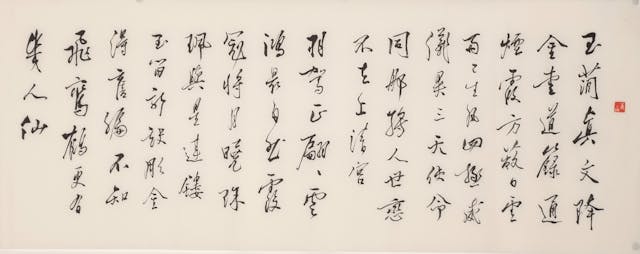 玉簡真文降
金書道籙通
煙霞方蔽日雲
雨已生風四極威
儀異三天使命
同那將人世戀
不去上清宮
羽駕正翩翩雲
鴻最自然霞
冠將月曉珠
珮與星連鏤
玉留新訣彫金
得舊編不知
飛鸞鶴更有
幾人仙